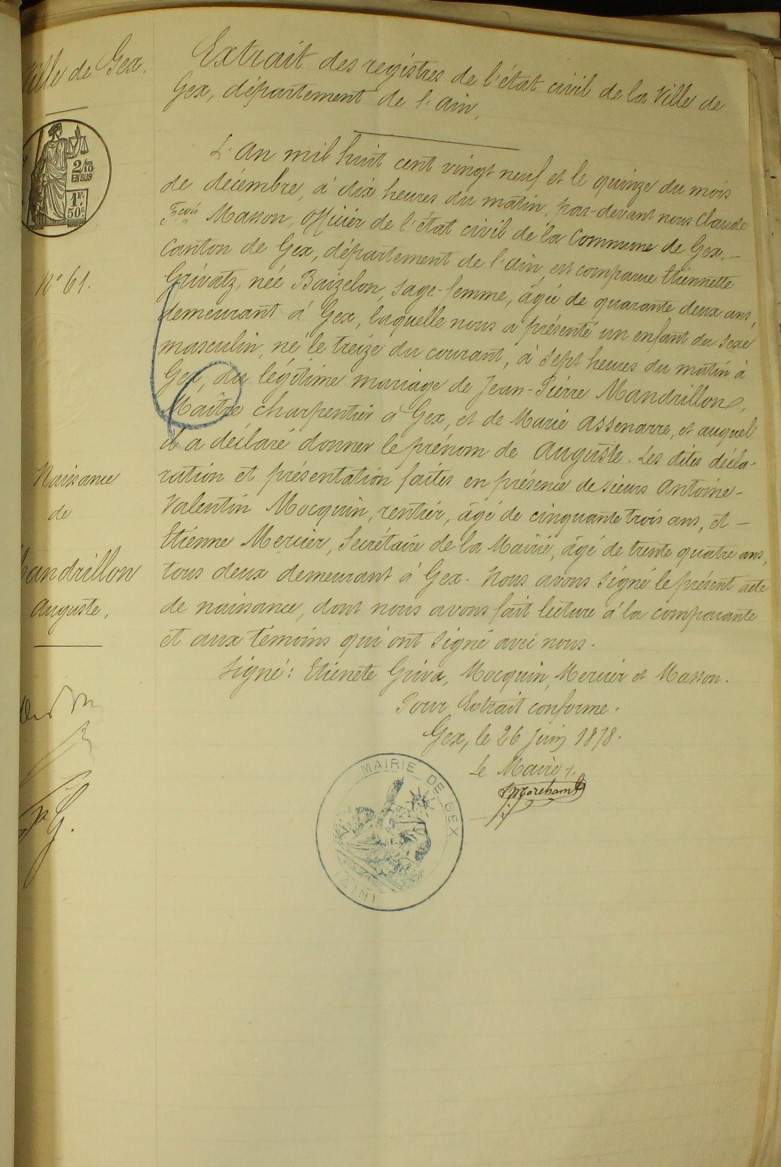 Ville de Gex.
Extrait des registres de l'état civil de la Ville de
Gex, département de l'ain.
2/10
EN SUS
1F
50c
L'An mil huit cent vingt neuf et le quinze du mois
de décembre, à dix heures du matin, par-devant nous Claude
Masson, officier de l'état civil de la Commune de Gex, —
Canton de Gex, département de l'ain, est comparue Etiennette
N° 61.
Grivatz, née Baizelon, sage-femme, âgée de quarante deux ans,
demeurant à Gex, laquelle nous a présenté un enfant du sexe
masculin, né le treize du courant, à sept heures du matin à
Gex, du légitime mariage de Jean-Pierre Mandrillon,
Maître charpentier à Gex, et de Marie Assenarre, et auquel
il a déclaré donner le prénom de Auguste. Les dites décla-
Naissance
de
Mandrillon
Auguste.
ration et présentation faites en présence de sieurs Antoine-
Valentin Mocquin, rentier, âgé de cinquante trois ans, et —
Etienne Mercier, Secrétaire de la Mairie, âgé de trente quatre ans,
tous deux demeurant à Gex. Nous avons signé le présent acte
de naissance, dont nous avons fait lecture à la comparante
et aux témoins qui ont signé avec nous.
Signé: Etienete Griva, Mocquin, Mercier et Masson.
Pour Extrait conforme.
Gex, le 26 Juin 1878.
Le Maire,
MAIRIE DE GEX
(AIN)